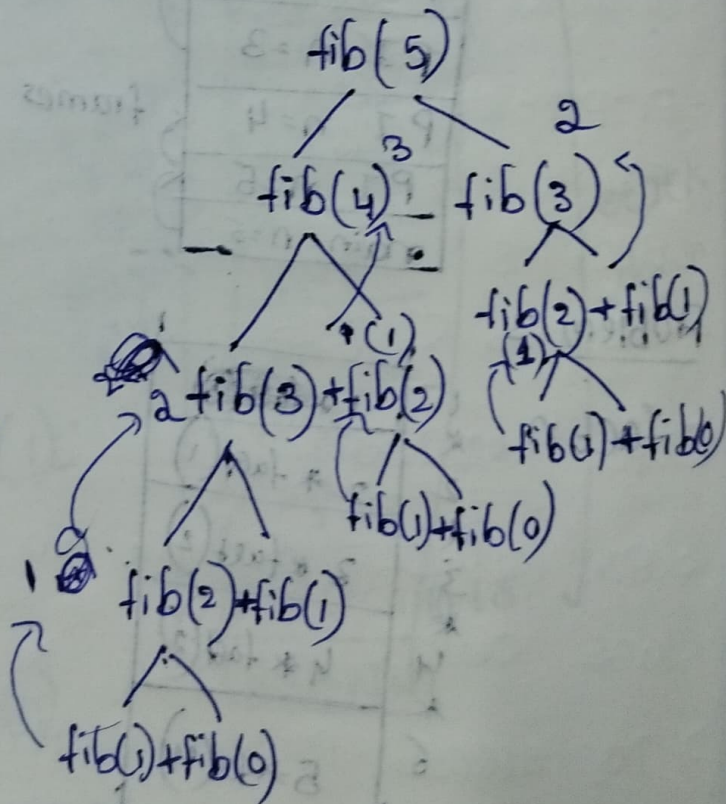 fib(5)
3 2
fib(4) fib(3)
fib(2)+fib(1)
(1) (1)
2 fib(3)+fib(2)
fib(1)+fib(0)
fib(1)+fib(0)
1 fib(2)+fib(1)
fib(1)+fib(0)